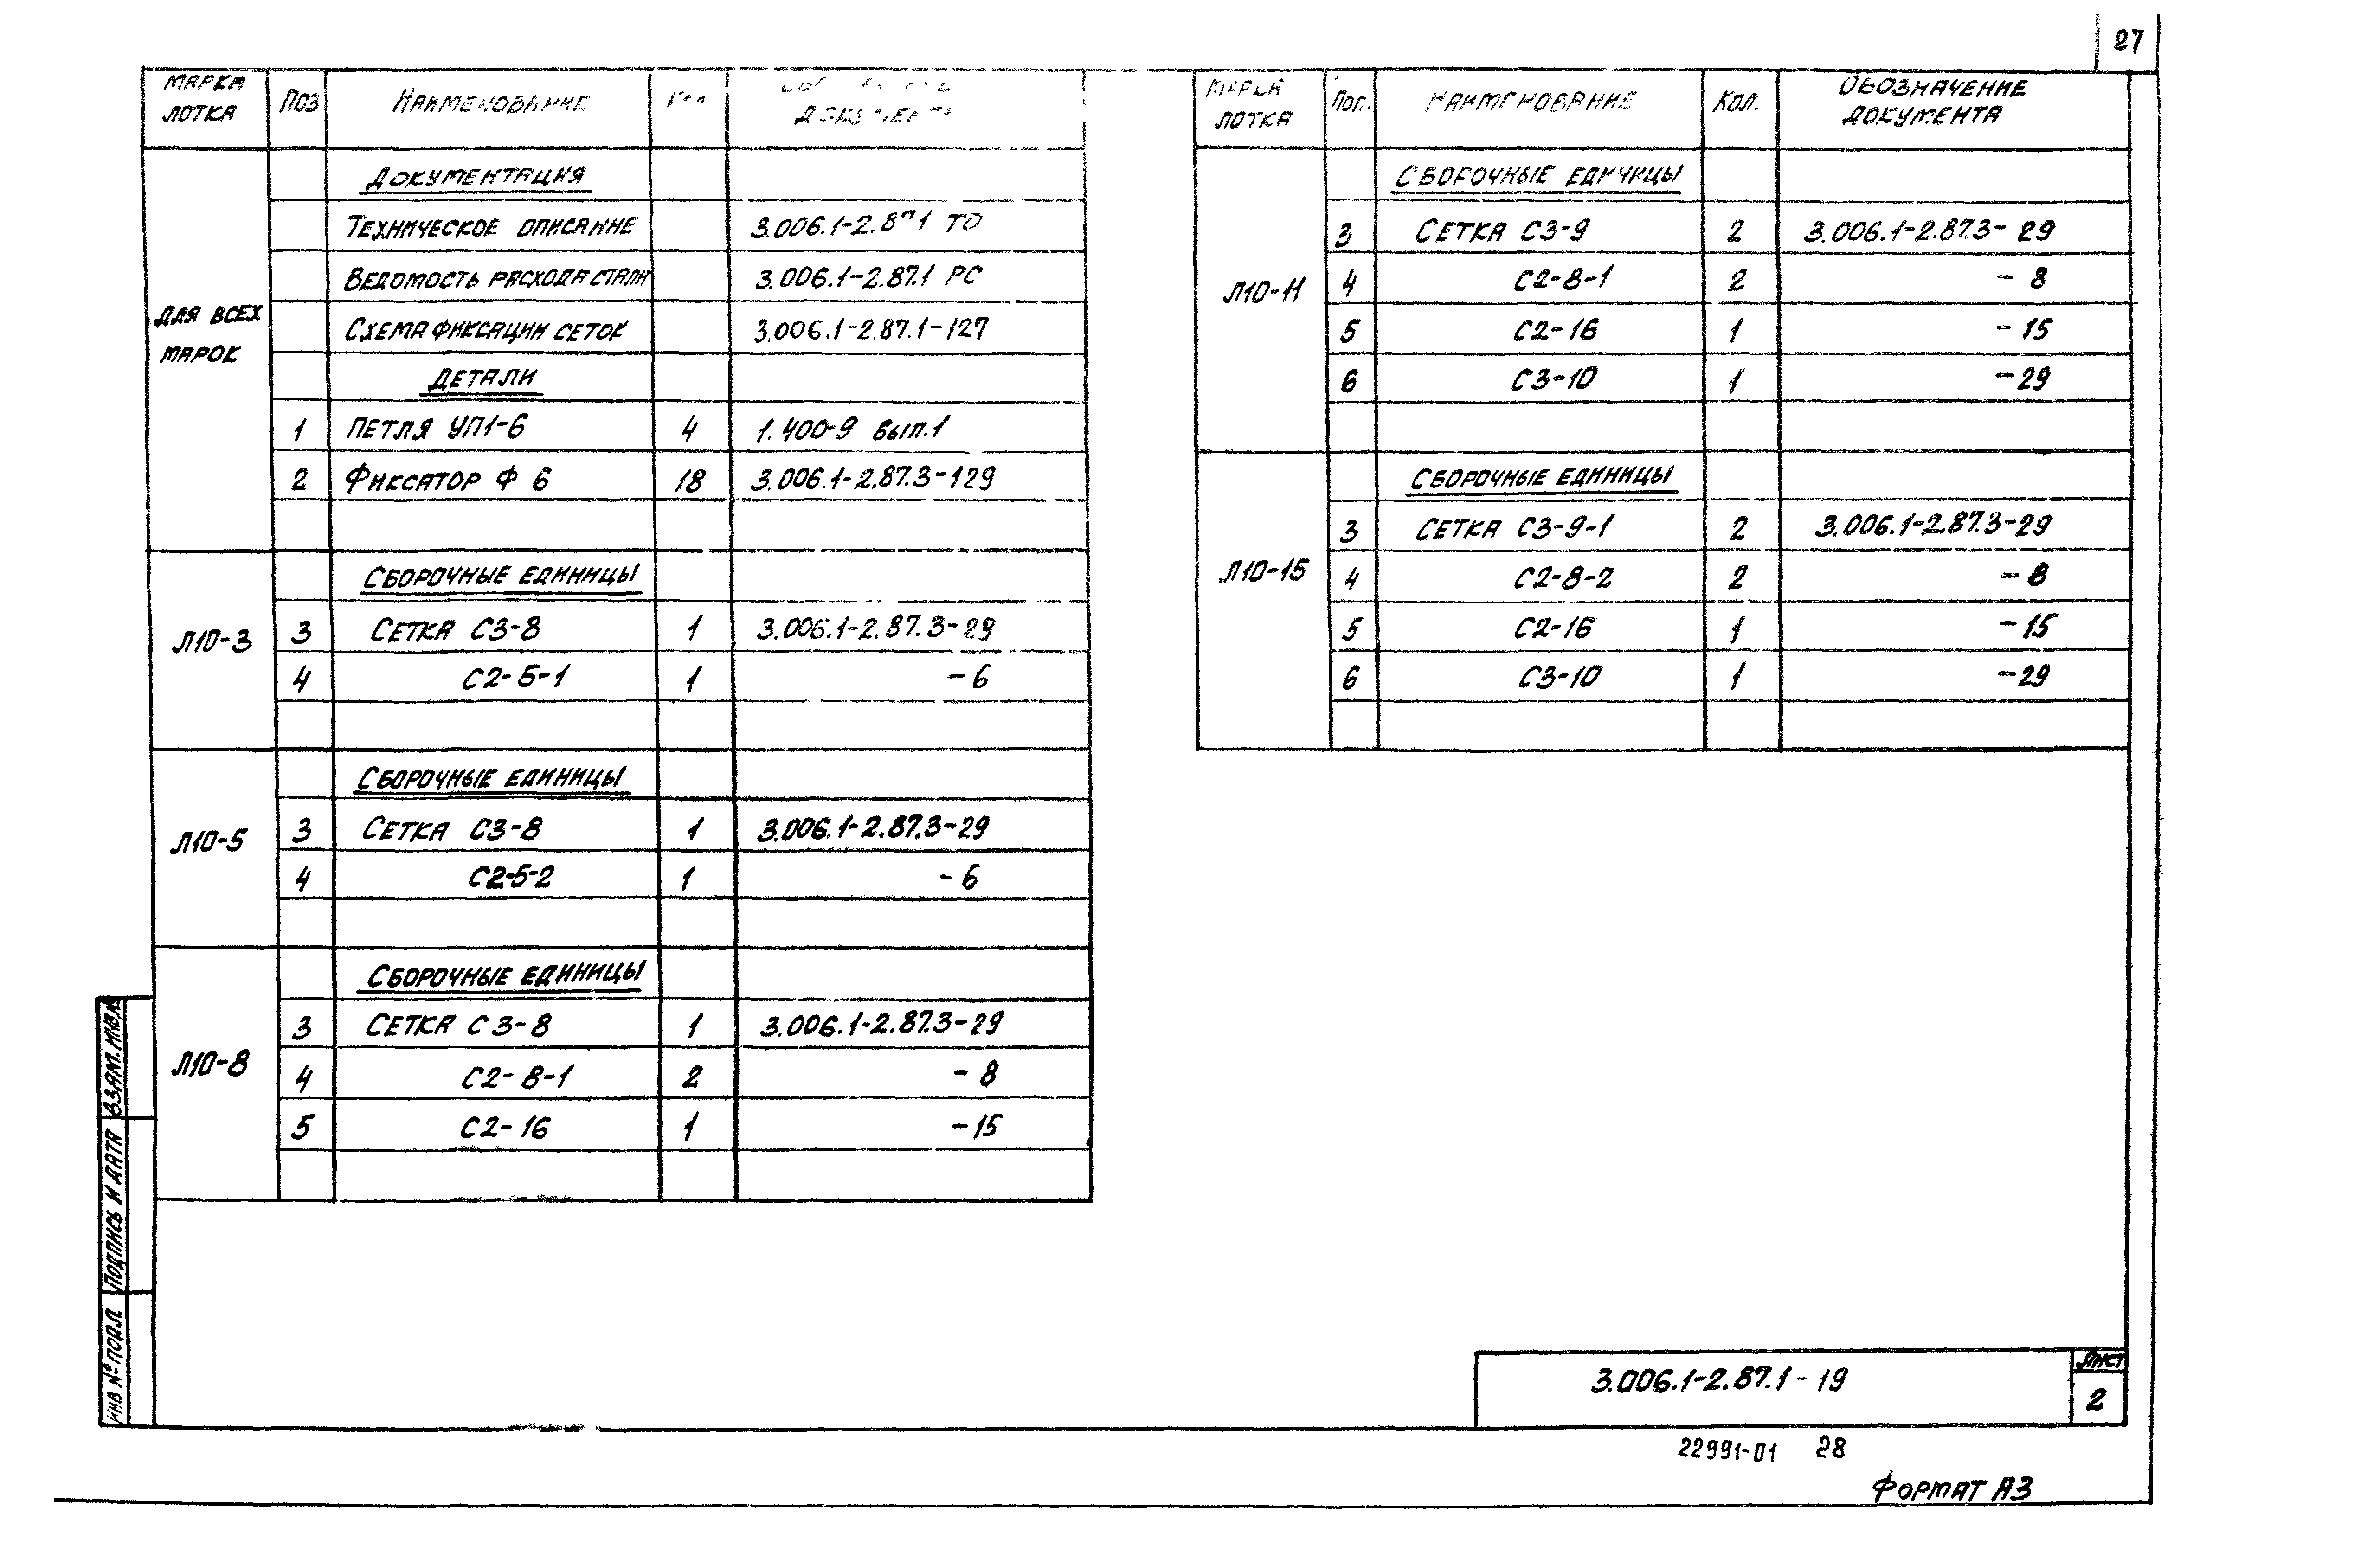 27
МАРКА ЛОТКА Поз НАИМЕНОВАНИЕ
ДЛЯ ВСЕХ МАРОК
ДОКУМЕНТАЦИЯ
ТЕХНИЧЕСКОЕ ОПИСАНИЕ ТО
ВЕДОМОСТЬ РАСХОДА СТАЛИ 3.006.1-2.87.1 РС
СХЕМА ФИКСАЦИИ СЕТОК 3.006.1-2.87.1-127
ДЕТАЛИ
1 ПЕТЛЯ УП1-6 4 1.400-9 Вып.1
2 ФИКСАТОР Ф 6 18 3.006.1-2.87.3-129
Л10-3
СБОРОЧНЫЕ ЕДИНИЦЫ
3 СЕТКА С3-8 1 3.006.1-2.87.3-29
4 С2-5-1 1 -6
Л10-5
СБОРОЧНЫЕ ЕДИНИЦЫ
3 СЕТКА С3-8 1 3.006.1-2.87.3-29
4 С2-5-2 1 -6
Л10-8
СБОРОЧНЫЕ ЕДИНИЦЫ
3 СЕТКА С3-8 1 3.006.1-2.87.3-29
4 С2-8-1 2 -8
5 С2-16 1 -15
МАРКА ЛОТКА Поз. НАИМЕНОВАНИЕ Кол. ОБОЗНАЧЕНИЕ ДОКУМЕНТА
Л10-11
СБОРОЧНЫЕ ЕДИНИЦЫ
3 СЕТКА С3-9 2 3.006.1-2.87.3-29
4 С2-8-1 2 -8
5 С2-16 1 -15
6 С3-10 1 -29
Л10-15
СБОРОЧНЫЕ ЕДИНИЦЫ
3 СЕТКА С3-9-1 2 3.006.1-2.87.3-29
4 С2-8-2 2 -8
5 С2-16 1 -15
6 С3-10 1 -29
ИНВ № ПОДЛ ПОДПИСЬ И ДАТА ВЗАМ.ИНВ.№
3.006.1-2.87.1-19
ЛИСТ
2
22991-01 28
ФОРМАТ А3